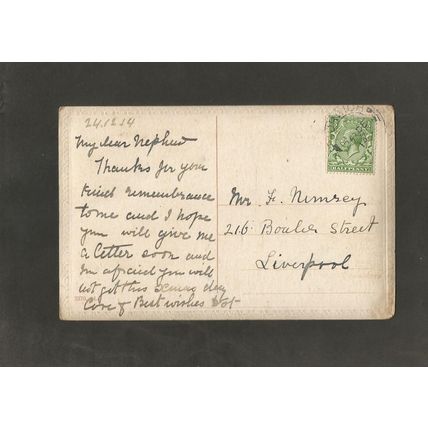 24.12.14
My dear Nephew
Thanks for your
kind remembrance
to me and I hope
you will give me
a letter soon and
Im afraid you will
not get this xmas day
Love & Best wishes
Mr F. Nimsey
216 Boulder Street
Liverpool
HALFPENNY